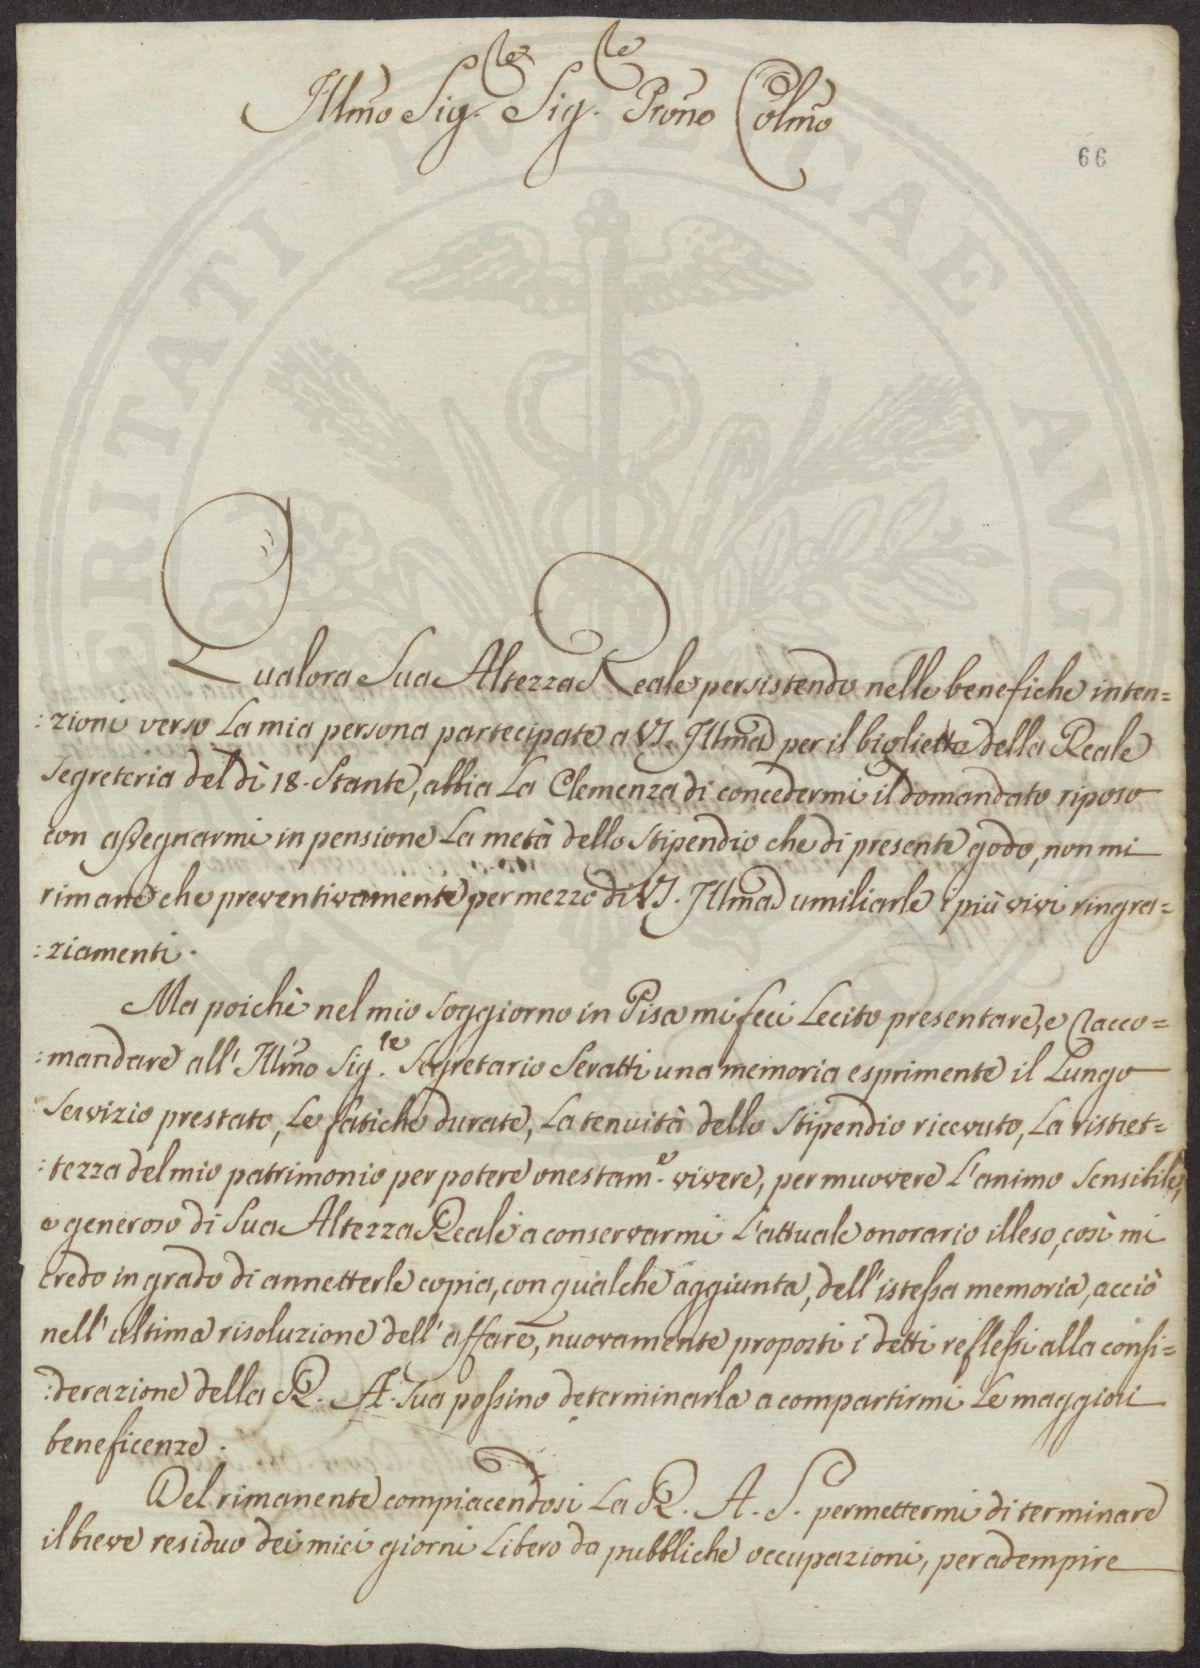 Illmo Sig.re Sig.re Prone Colmo
66
Qualora Sua Altezza Reale persistendo nelle benefiche inten=
:zioni verso la mia persona partecipate a VS. Illma per il biglietto della Reale
Segreteria del dì 18. Stante, abbia la Clemenza di concedermi il domandato riposo
con assegnarmi in pensione la metà dello Stipendio che di presente godo, non mi
rimane che preventivamente per mezzo di VS. Illma umiliarle i più vivi ringra=
:ziamenti.
Ma poichè nel mio soggiorno in Pisa mi feci lecito presentare, e racco=
:mandare all' Illmo Sig.re Segretario Seratti una memoria esprimente il lungo
Servizio prestato, le fatiche durate, la tenuità dello Stipendio ricevuto, la ristret=
:tezza del mio patrimonio per potere onestam.e vivere, per muovere l'animo sensibile,
e generoso di Sua Altezza Reale a conservarmi l'attuale onorario illeso, così mi
credo in grado di annetterle copia, con qualche aggiunta, dell' istessa memoria, acciò
nell' ultima risoluzione dell' affare, nuovamente proposti i detti reflessi alla consi=
:derazione della R. A. Sua possino determinarla a compartirmi le maggiori
beneficenze.
Del rimanente compiacendosi la R. A. S. permettermi di terminare
il breve residuo dei miei giorni libero da pubbliche occupazioni, per adempire